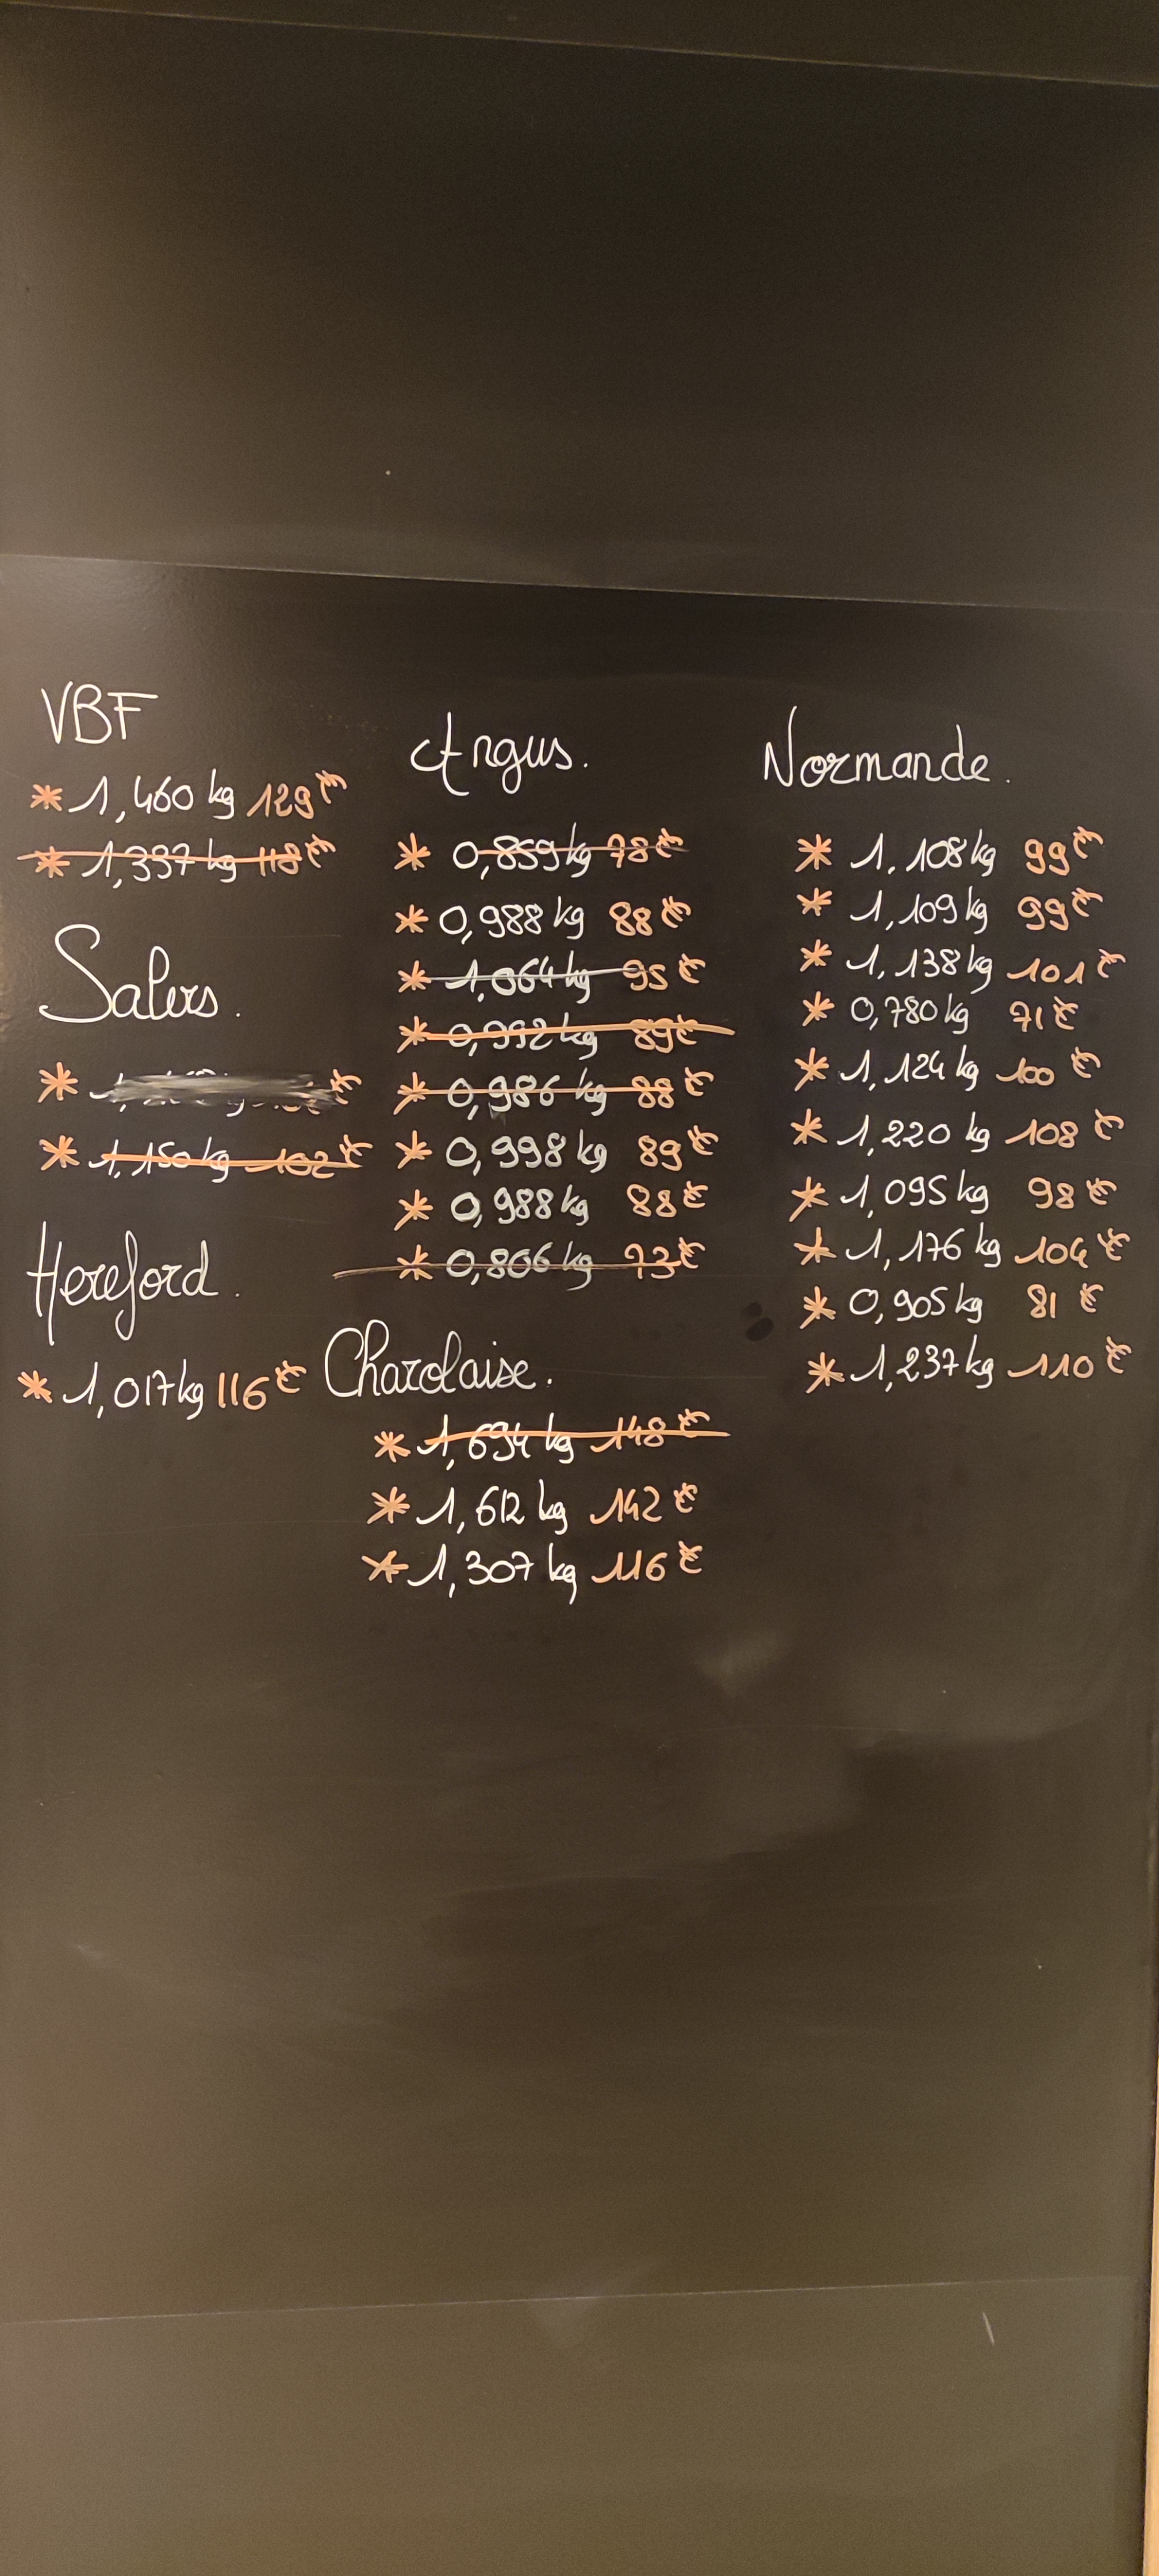 VBF
* 1,460 kg 129€
* 1,337 kg 118€
Salers.
*
* 1,150 kg 102€
Hereford.
* 1,017 kg 116€
Angus.
* 0,859 kg 78€
* 0,988 kg 88€
* 1,064 kg 95€
* 0,992 kg 89€
* 0,986 kg 88€
* 0,998 kg 89€
* 0,988 kg 88€
* 0,806 kg 73€
Charolaise.
* 1,694 kg 148€
* 1,612 kg 142€
* 1,307 kg 116€
Normande.
* 1,108 kg 99€
* 1,109 kg 99€
* 1,138 kg 101€
* 0,780 kg 71€
* 1,124 kg 100€
* 1,220 kg 108€
* 1,095 kg 98€
* 1,176 kg 104€
* 0,905 kg 81€
* 1,237 kg 110€